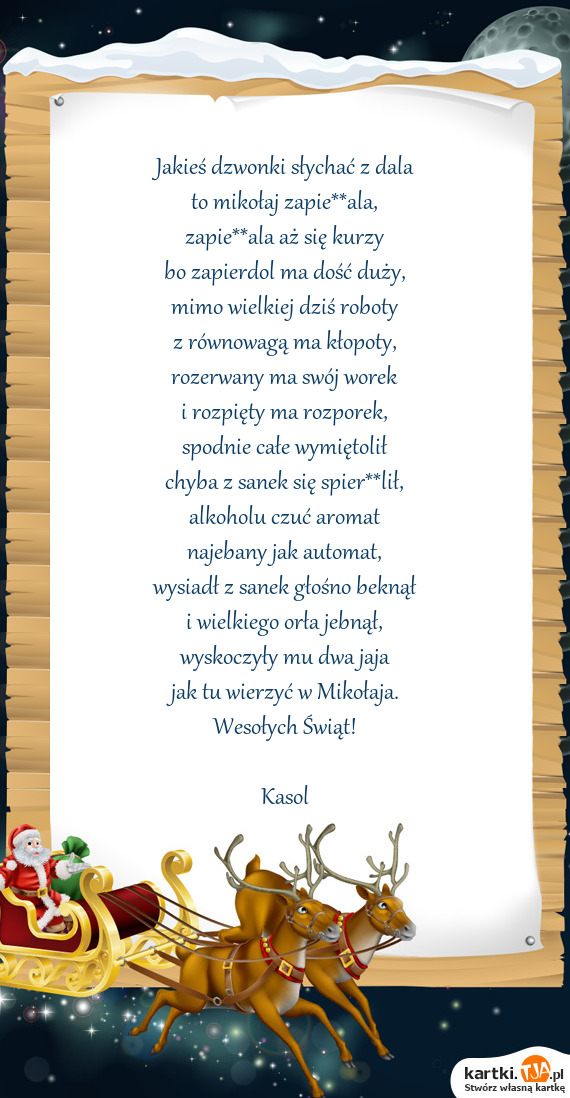 Jakieś dzwonki słychać z dala
to mikołaj zapie**ala,
zapie**ala aż się kurzy
bo zapierdol ma dość duży,
mimo wielkiej dziś roboty
z równowagą ma kłopoty,
rozerwany ma swój worek
i rozpięty ma rozporek,
spodnie całe wymiętolił
chyba z sanek się spier**lił,
alkoholu czuć aromat
najebany jak automat,
wysiadł z sanek głośno beknął
i wielkiego orła jebnął,
wyskoczyły mu dwa jaja
jak tu wierzyć w Mikołaja.
Wesołych Świąt!
Kasol
kartki.TJA.pl
Stwórz własną kartkę